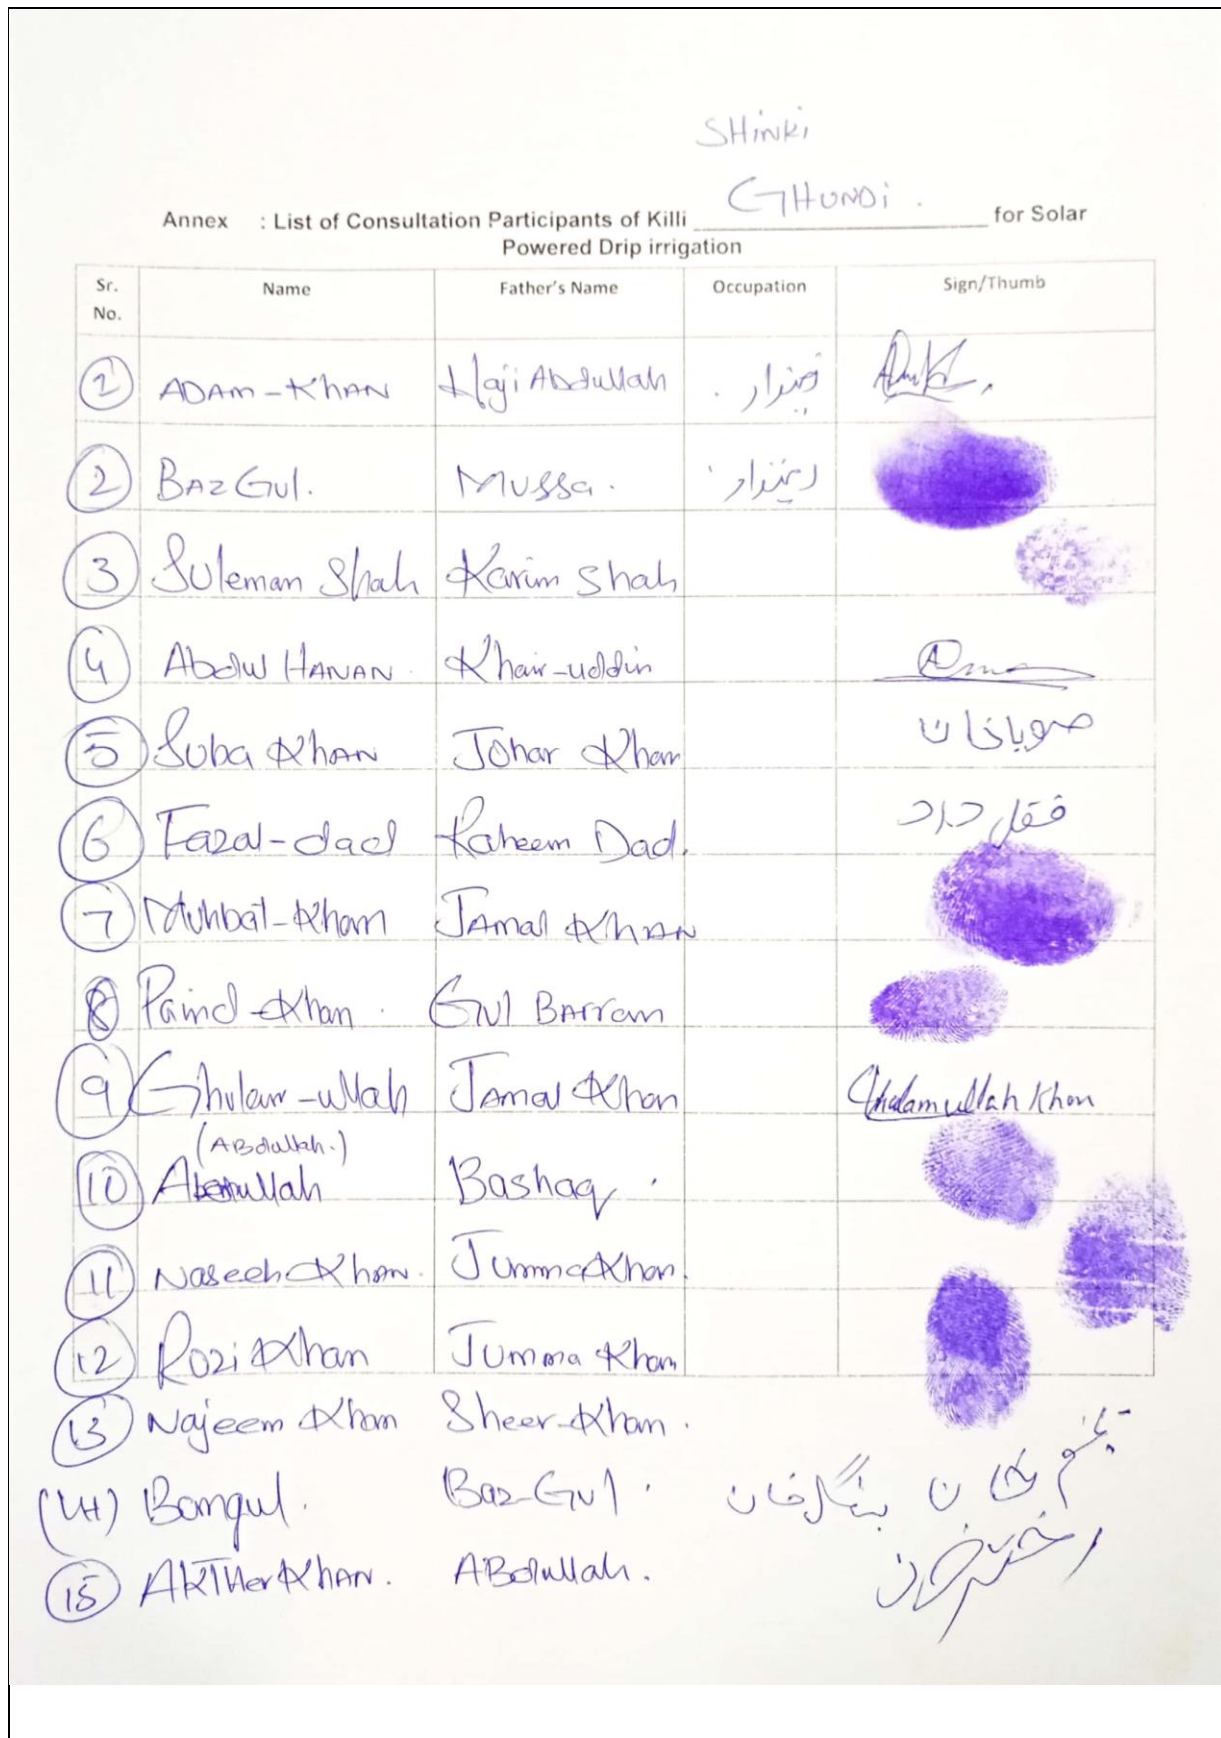 SHinki
GHUNDi .
Annex : List of Consultation Participants of Killi ____________ for Solar
Powered Drip irrigation
Sr. No. Name Father's Name Occupation Sign/Thumb
2 ADAM-KHAN Haji Abdullah
2 BAZ GUl. Mussa.
3 Suleman Shah Karim Shah
4 Abdul HANAN. Khair-uddin
5 Suba KHAN Johar Khan صوباخان
6 Fazal-dad Raheem Dad.
7 Muhbat-Khan JAMAl KHAN
8 Paind-Khan. Gul BArram
9 Ghulam-ullah JAMAl Khan Ghulamullah Khan
(ABdullah.)
10 Bashaq.
11 Naseeb Khan. Jumma Khan.
12 Rozi Khan Jumma Khan
13 Najeem Khan Sheer-Khan.
(14) Bangul. Baz-Gul.
15 AKTHer KHAN. ABdullah.